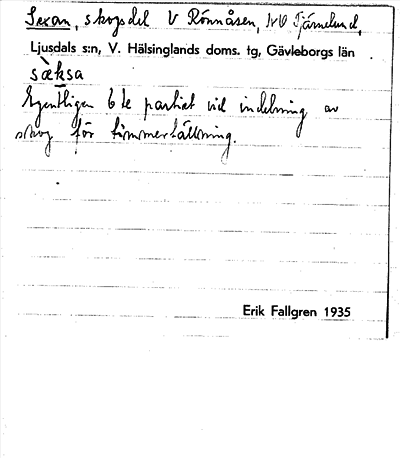 Sexan, skogsdel V Rönnåsen, NV Tjärnelund,
Ljusdals s:n, V. Hälsinglands doms. tg, Gävleborgs län
sæ̀ksa
Egentligen 6 te partiet vid indelning av
skog för timmerfällning.
Erik Fallgren 1935